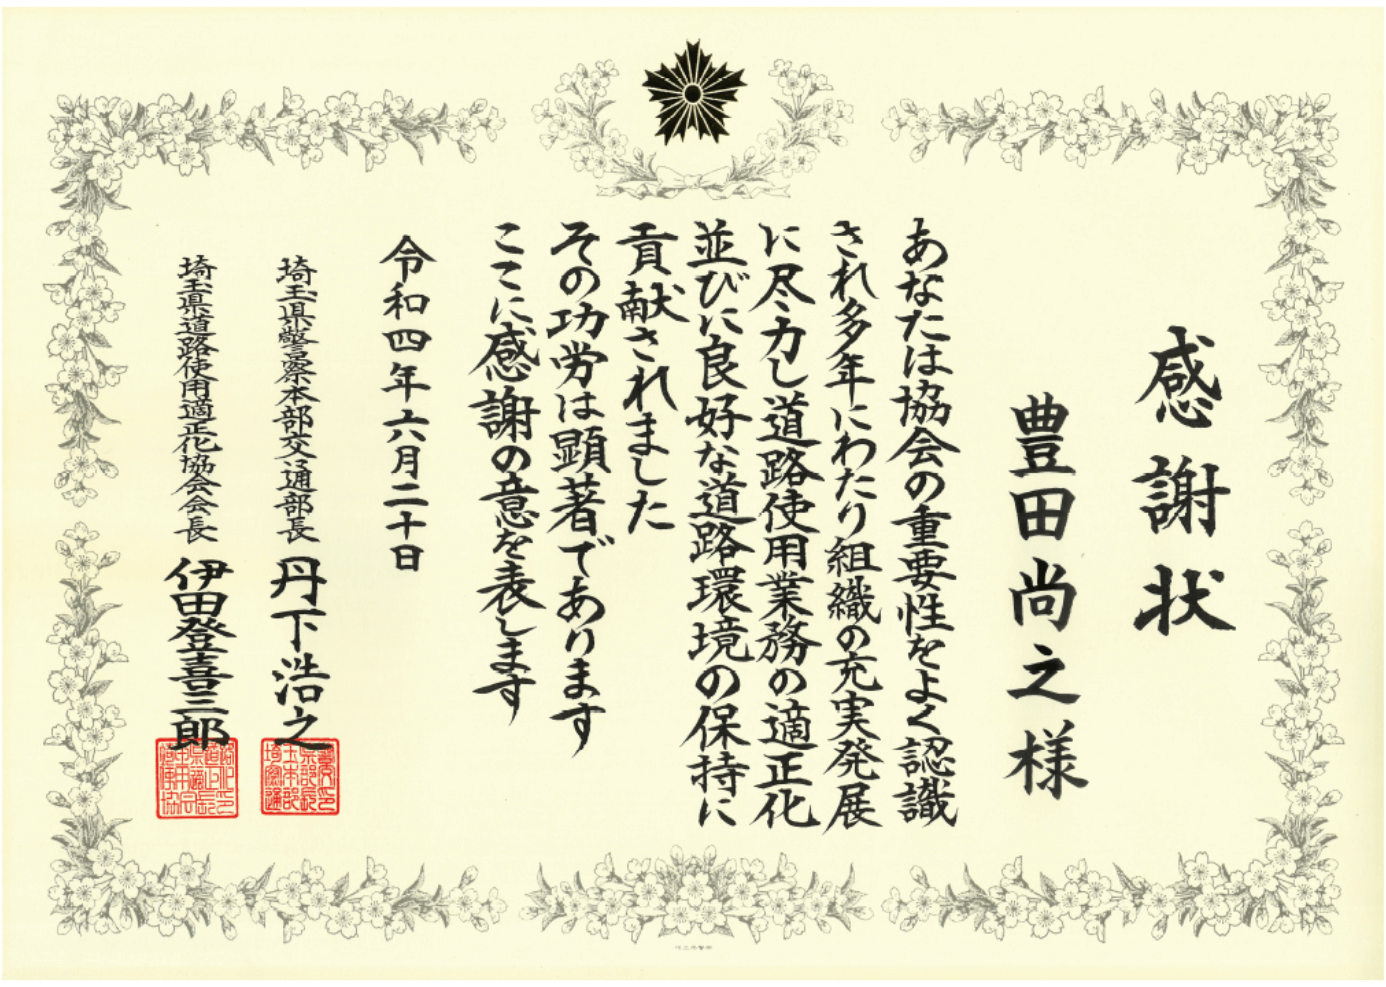 感謝状
豊田尚之様
あなたは協会の重要性をよく認識
され多年にわたり組織の充実発展
に尽力し道路使用業務の適正化
並びに良好な道路環境の保持に
貢献されました
その功労は顕著であります
ここに感謝の意を表します
令和四年六月二十日
埼玉県警察本部交通部長 丹下浩之
埼玉県道路使用適正化協会会長 伊田登喜三郎